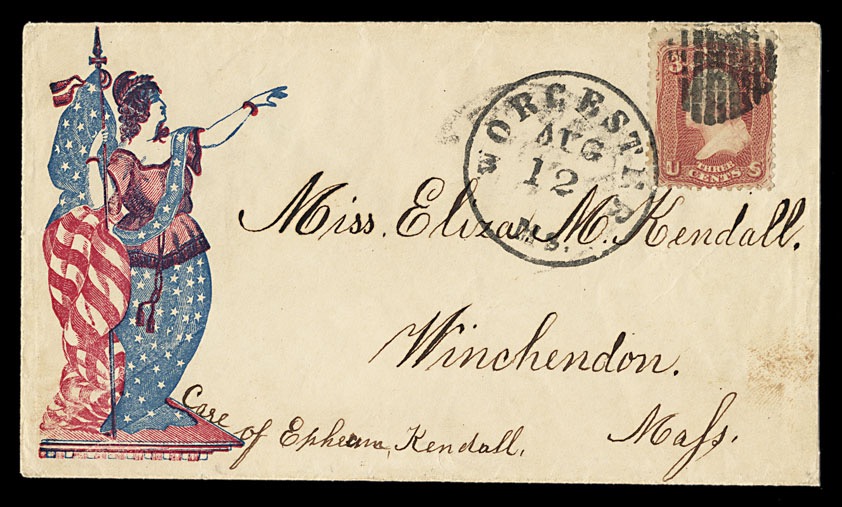 WORCESTER
AUG
12
Ms.
3
U THREE CENTS S
Miss. Eliza M. Kendall.
Winchendon.
Mass.
Care
of Ephram Kendall.